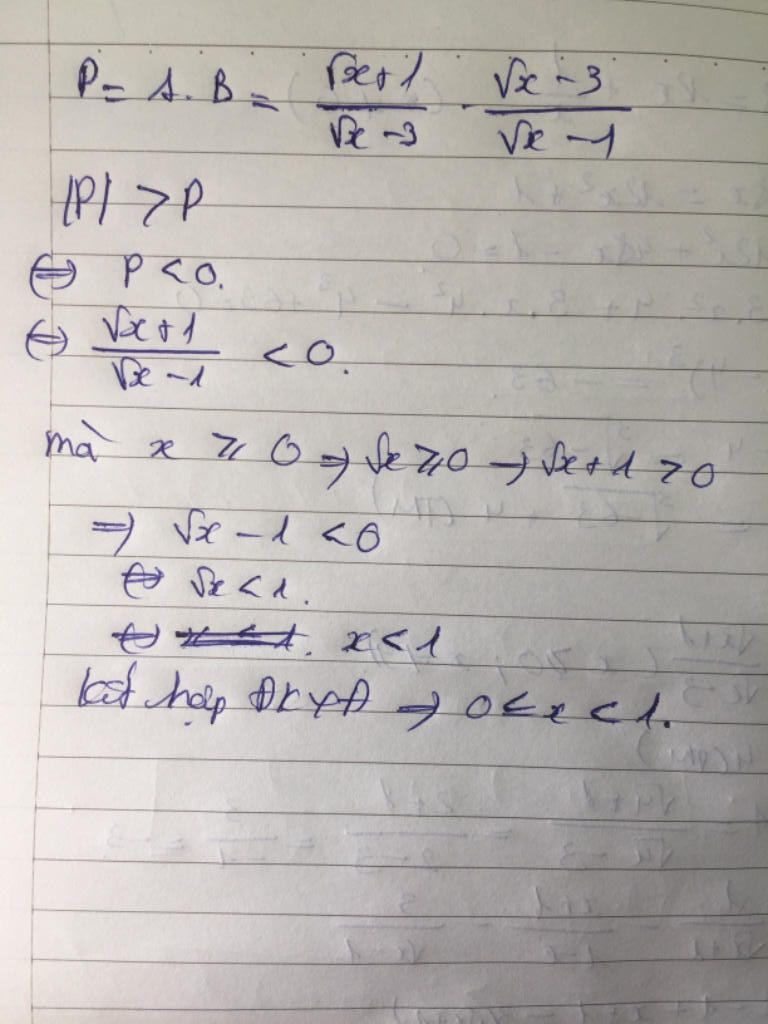 P = A.B = \frac{\sqrt{x}+1}{\sqrt{x}-3} \cdot \frac{\sqrt{x}-3}{\sqrt{x}-1}
|P| > P
⇔ P < 0.
⇔ \frac{\sqrt{x}+1}{\sqrt{x}-1} < 0.
mà x ⩾ 0 ⇒ √x ⩾ 0 → √x + 1 > 0
⇒ √x - 1 < 0
⇔ √x < 1.
⇔ x < 1
kết hợp ĐKXĐ ⇒ 0 ≤ x < 1.